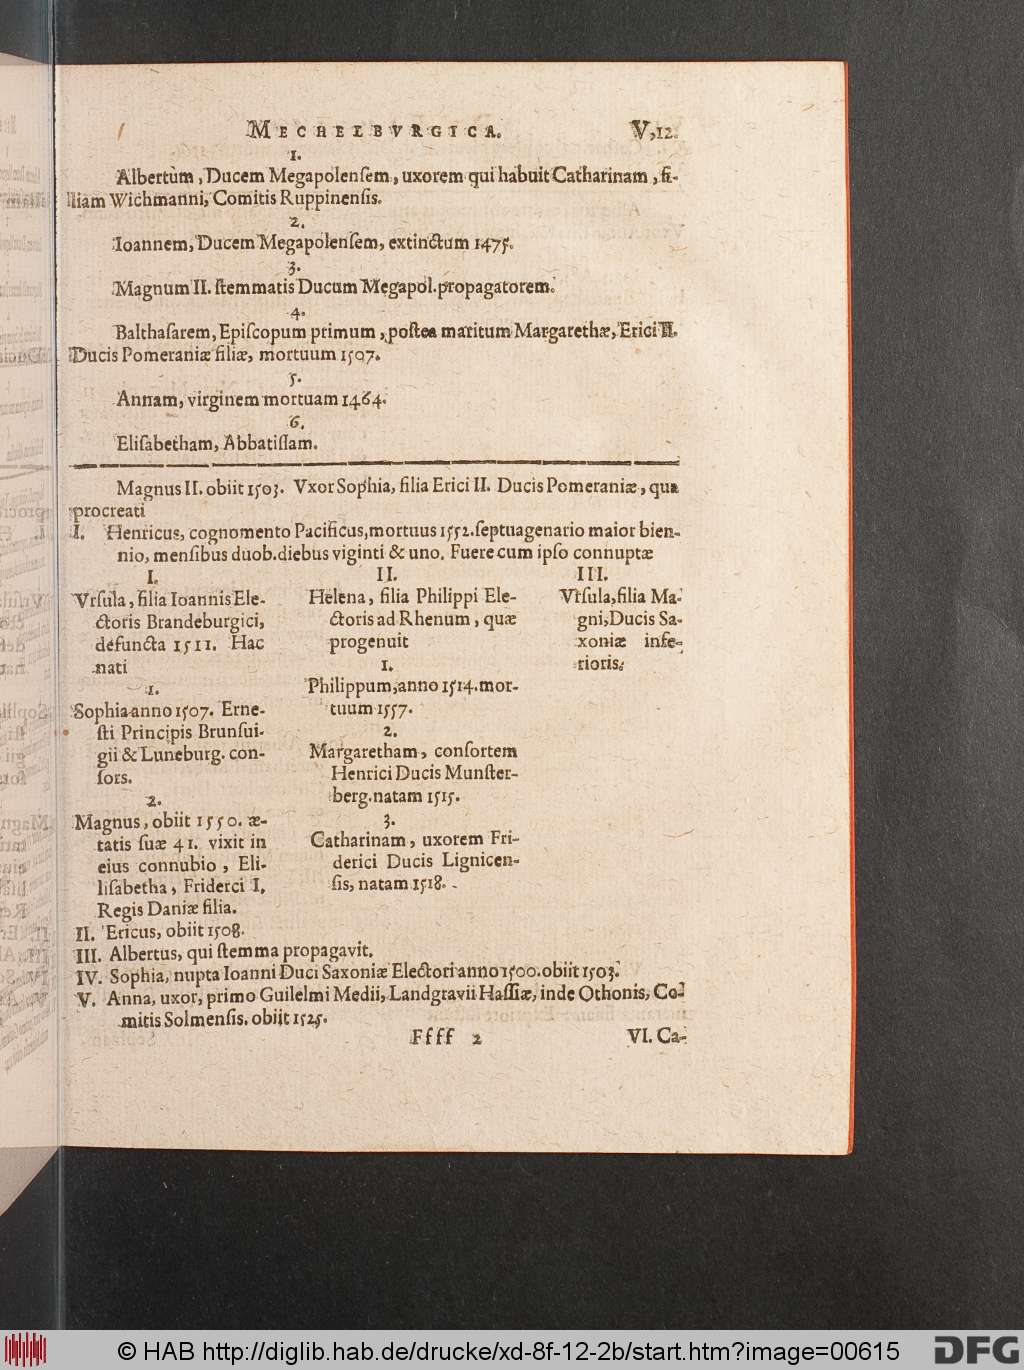 MECHELBVRGICA. V,12.
1.
Albertùm, Ducem Megapolenſem, uxorem qui habuit Catharinam, fi-
liam Wichmanni, Comitis Ruppinenſis.
2.
Ioannem, Ducem Megapolenſem, extinctum 1475.
3.
Magnum II. ſtemmatis Ducum Megapol. propagatorem.
4.
Balthaſarem, Epiſcopum primum, poſtea maritum Margarethæ, Erici II.
Ducis Pomeraniæ filiæ, mortuum 1507.
5.
Annam, virginem mortuam 1464.
6.
Eliſabetham, Abbatiſſam.
Magnus II. obiit 1503. Vxor Sophia, filia Erici II. Ducis Pomeraniæ, qua
procreati
I. Henricus, cognomento Pacificus, mortuus 1552. ſeptuagenario maior bien-
nio, menſibus duob. diebus viginti & uno. Fuere cum ipſo connuptæ
I.
Vrſula, filia Ioannis Ele-
ctoris Brandeburgici,
defuncta 1511. Hac
nati
1.
Sophia anno 1507. Erne-
ſti Principis Brunſui-
gii & Luneburg. con-
ſors.
2.
Magnus, obiit 1550. æ-
tatis ſuæ 41. vixit in
eius connubio, Eli-
liſabetha, Friderci I,
Regis Daniæ filia.
II.
Helena, filia Philippi Ele-
ctoris ad Rhenum, quæ
progenuit
1.
Philippum, anno 1514. mor-
tuum 1557.
2.
Margaretham, conſortem
Henrici Ducis Munſter-
berg. natam 1515.
3.
Catharinam, uxorem Fri-
derici Ducis Lignicen-
ſis, natam 1518.
III.
Vrſula, filia Ma-
gni, Ducis Sa-
xoniæ infe-
rioris.
II. Ericus, obiit 1508.
III. Albertus, qui ſtemma propagavit.
IV. Sophia, nupta Ioanni Duci Saxoniæ Electori anno 1500. obiit 1503.
V. Anna, uxor, primo Guilelmi Medii, Landgravii Haſſiæ, inde Othonis, Co-
mitis Solmenſis. obiit 1525.
Ffff 2 VI. Ca-
© HAB http://diglib.hab.de/drucke/xd-8f-12-2b/start.htm?image=00615
DFG